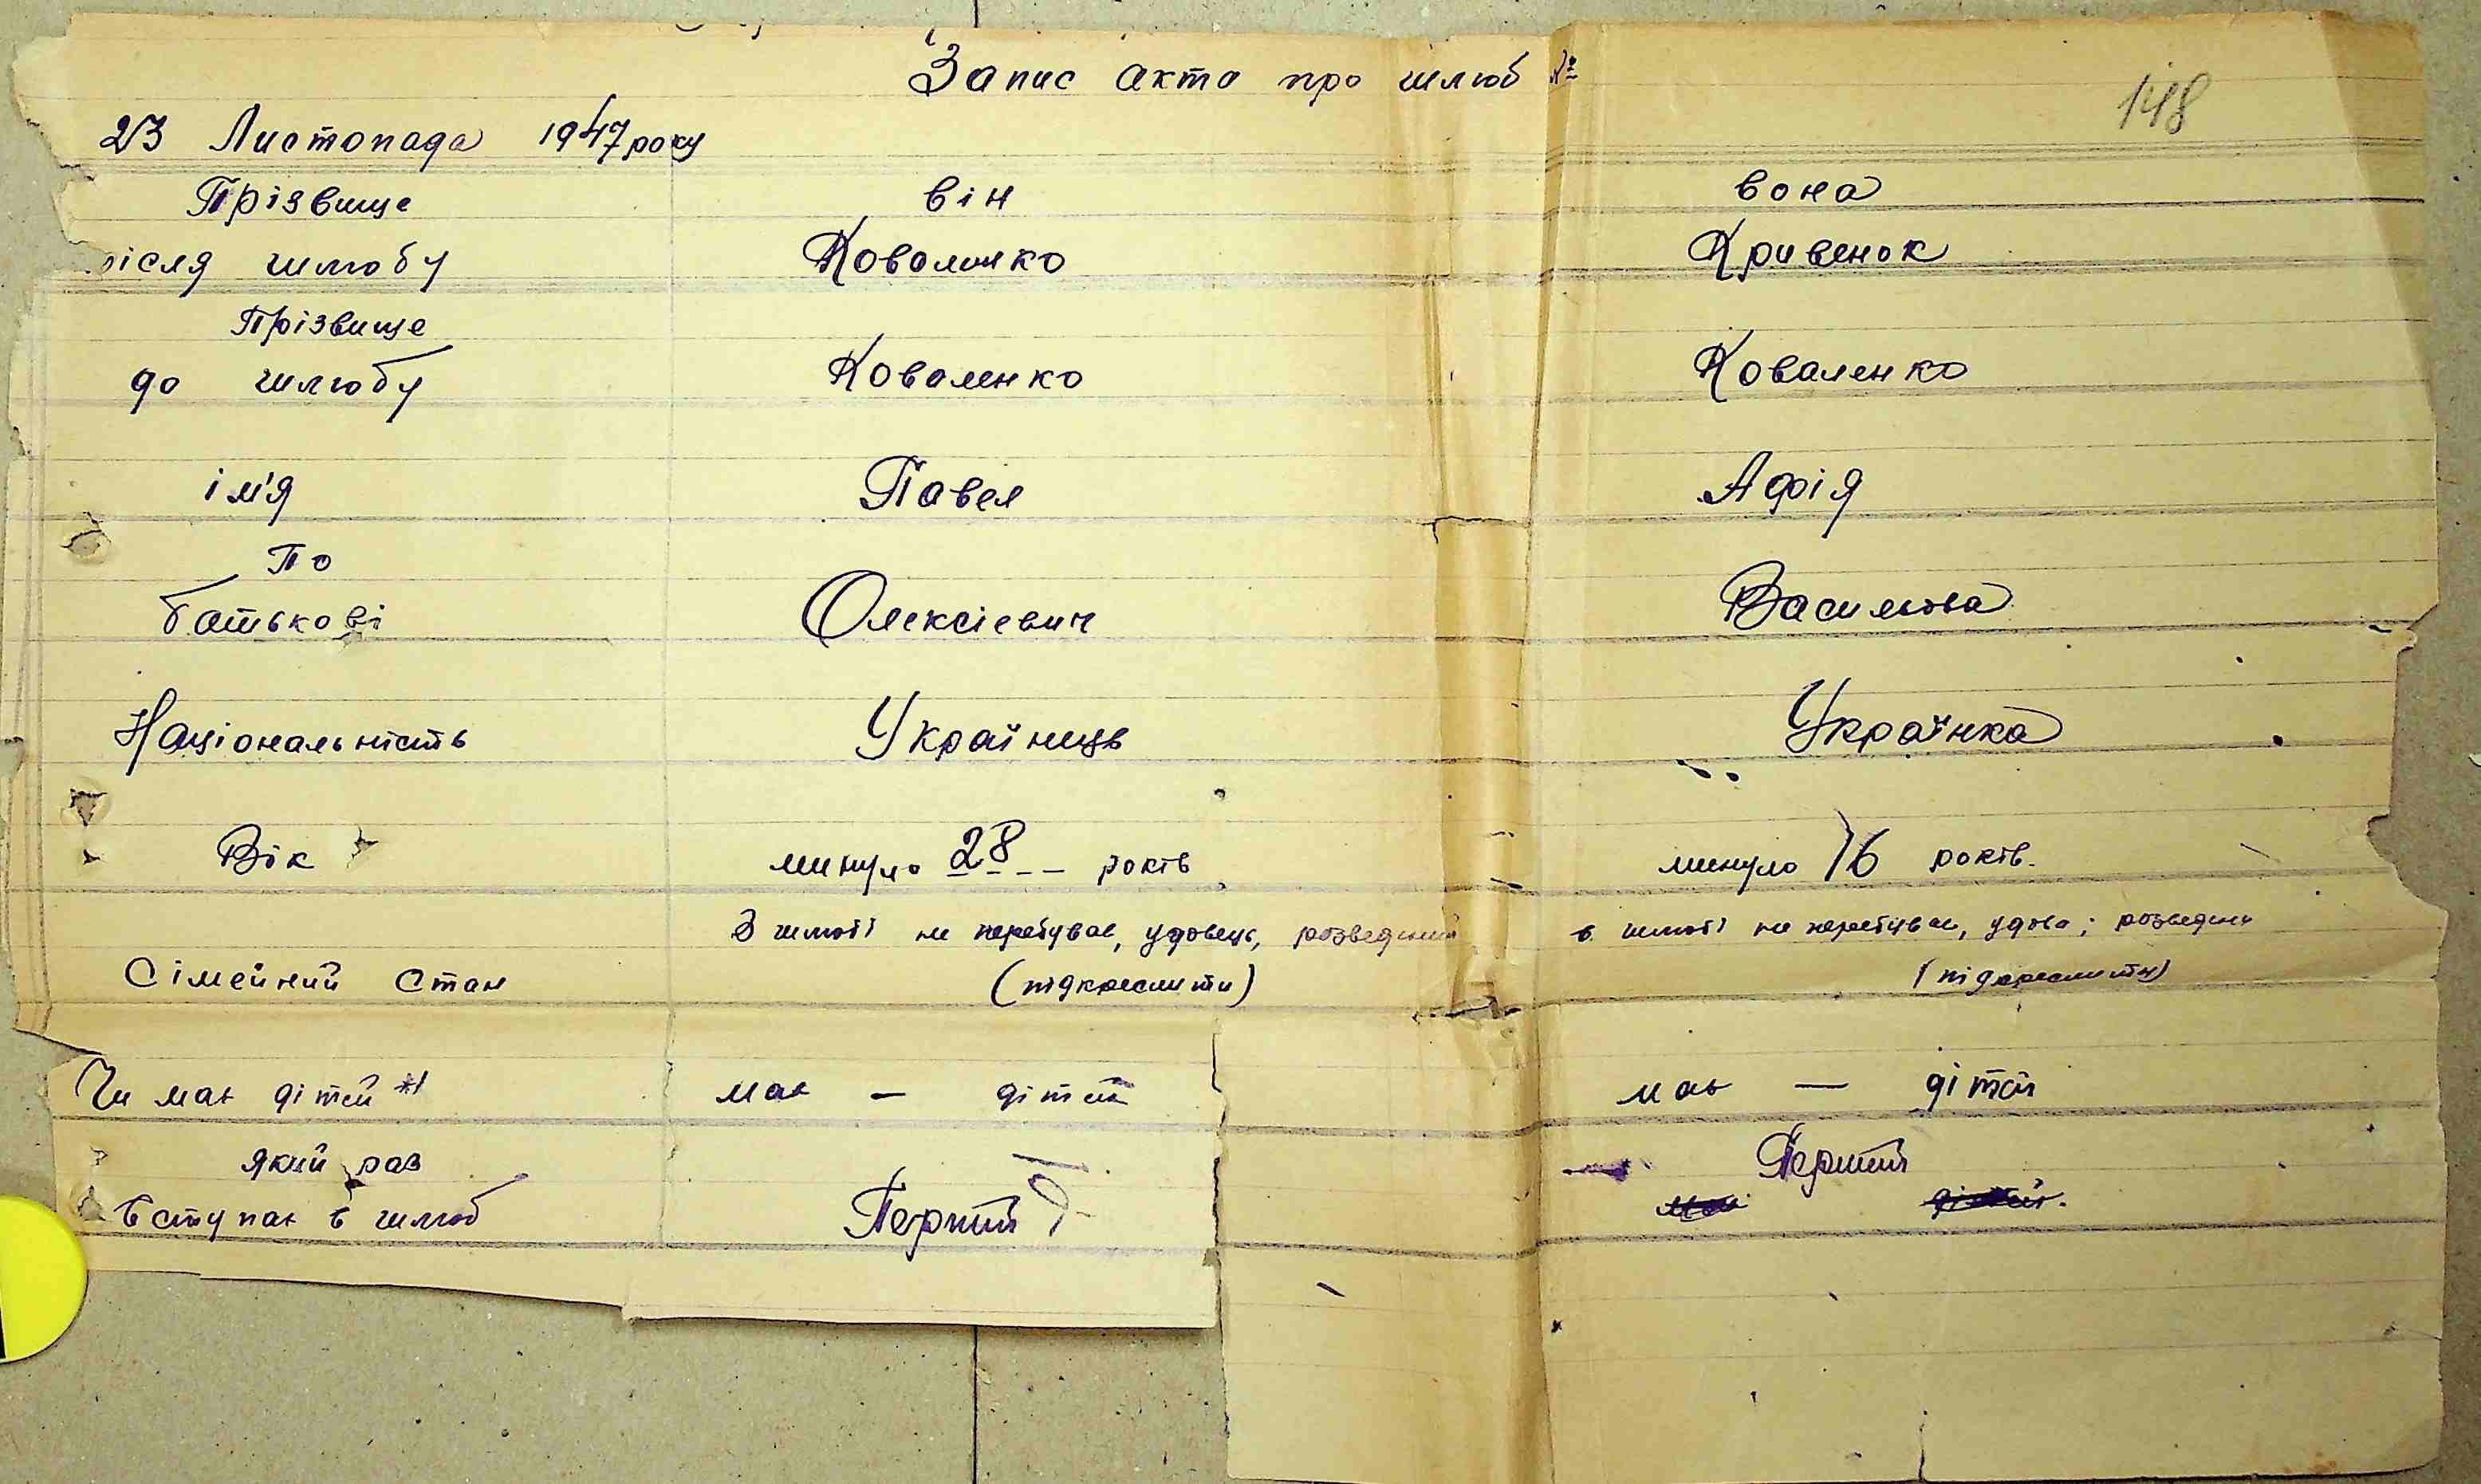 Запис акта про шлюб №
148
23 Листопада 1947 року
Прізвище він вона
після шлюбу Коваленко Кривенок
Прізвище
до шлюбу Коваленко Коваленко
ім'я Павел Афія
По
батькові Олексіевич Василівва
Національність Українець Українка
Вік минуло 28 років минуло 16 років.
В шлюбі не перебував, удовець, розведений в шлюбі не перебувал, удова; розведена
Сімейний стан (підкреслити) (підкреслити)
Чи має дітей *) має — дітей має — дітей
який раз Перший
вступає в шлюб Перший